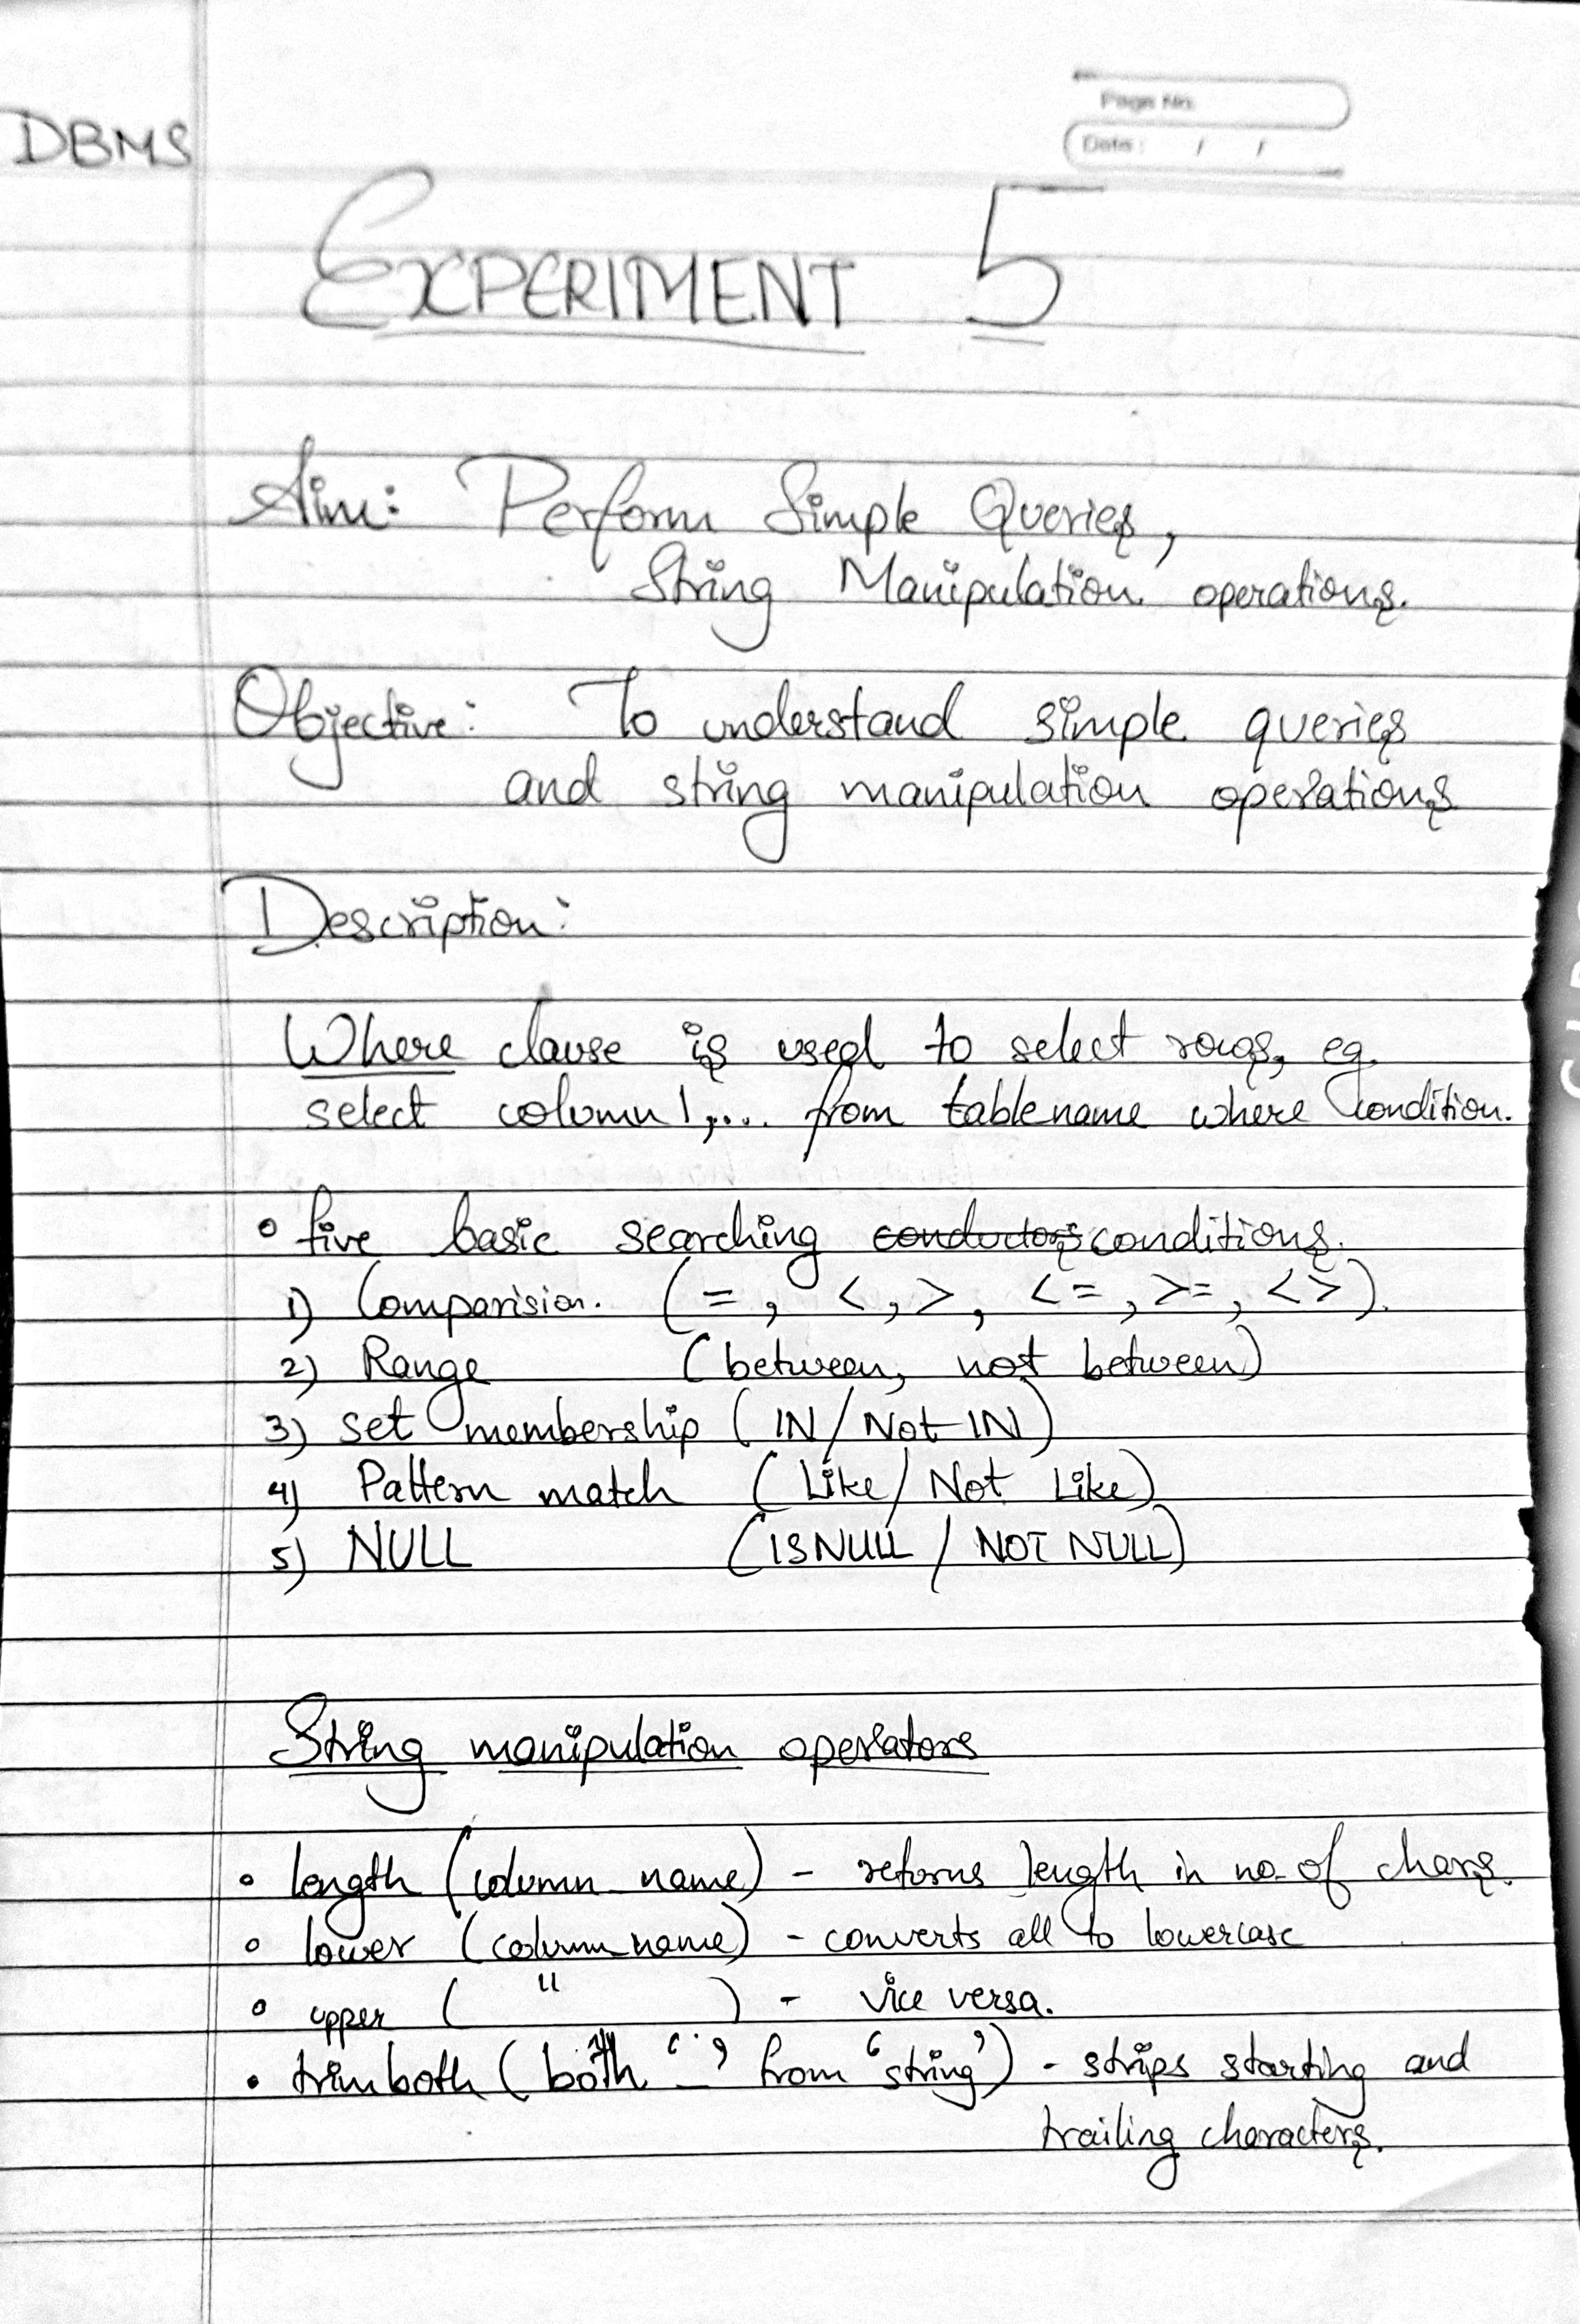 Page No.
Date: / /
DBMS
EXPERIMENT 5
Aim: Perform Simple Queries,
String Manipulation operations.
Objective: To understand simple queries
and string manipulation operations
Description:
Where clause is used to select rows, eg.
select column1,.... from tablename where condition.
• five basic searching conductors conditions.
1) Comparision. (=, <, >, <=, >=, <>).
2) Range (between, not between)
3) set membership (IN/Not IN)
4) Pattern match (Like/Not Like)
5) NULL (ISNULL / NOT NULL)
String manipulation operators
• length (column_name) - returns length in no. of chars.
• lower (column_name) - converts all to lowercase
• upper ( " ) - vice versa.
• trimboth (both '_' from 'string') - strips starting and
trailing characters.